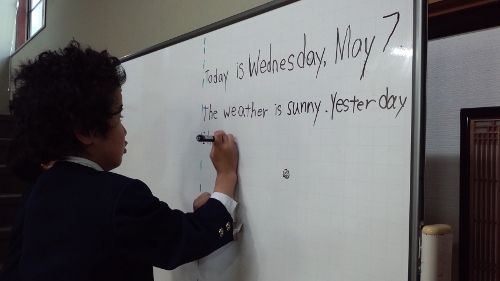 Today is Wednesday, May 7.
the weather is sunny. Yesterday